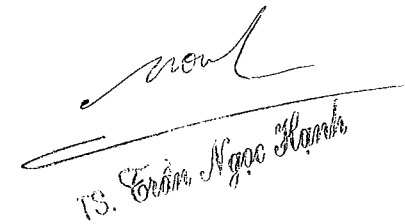 TS. Trần Ngọc Hạnh